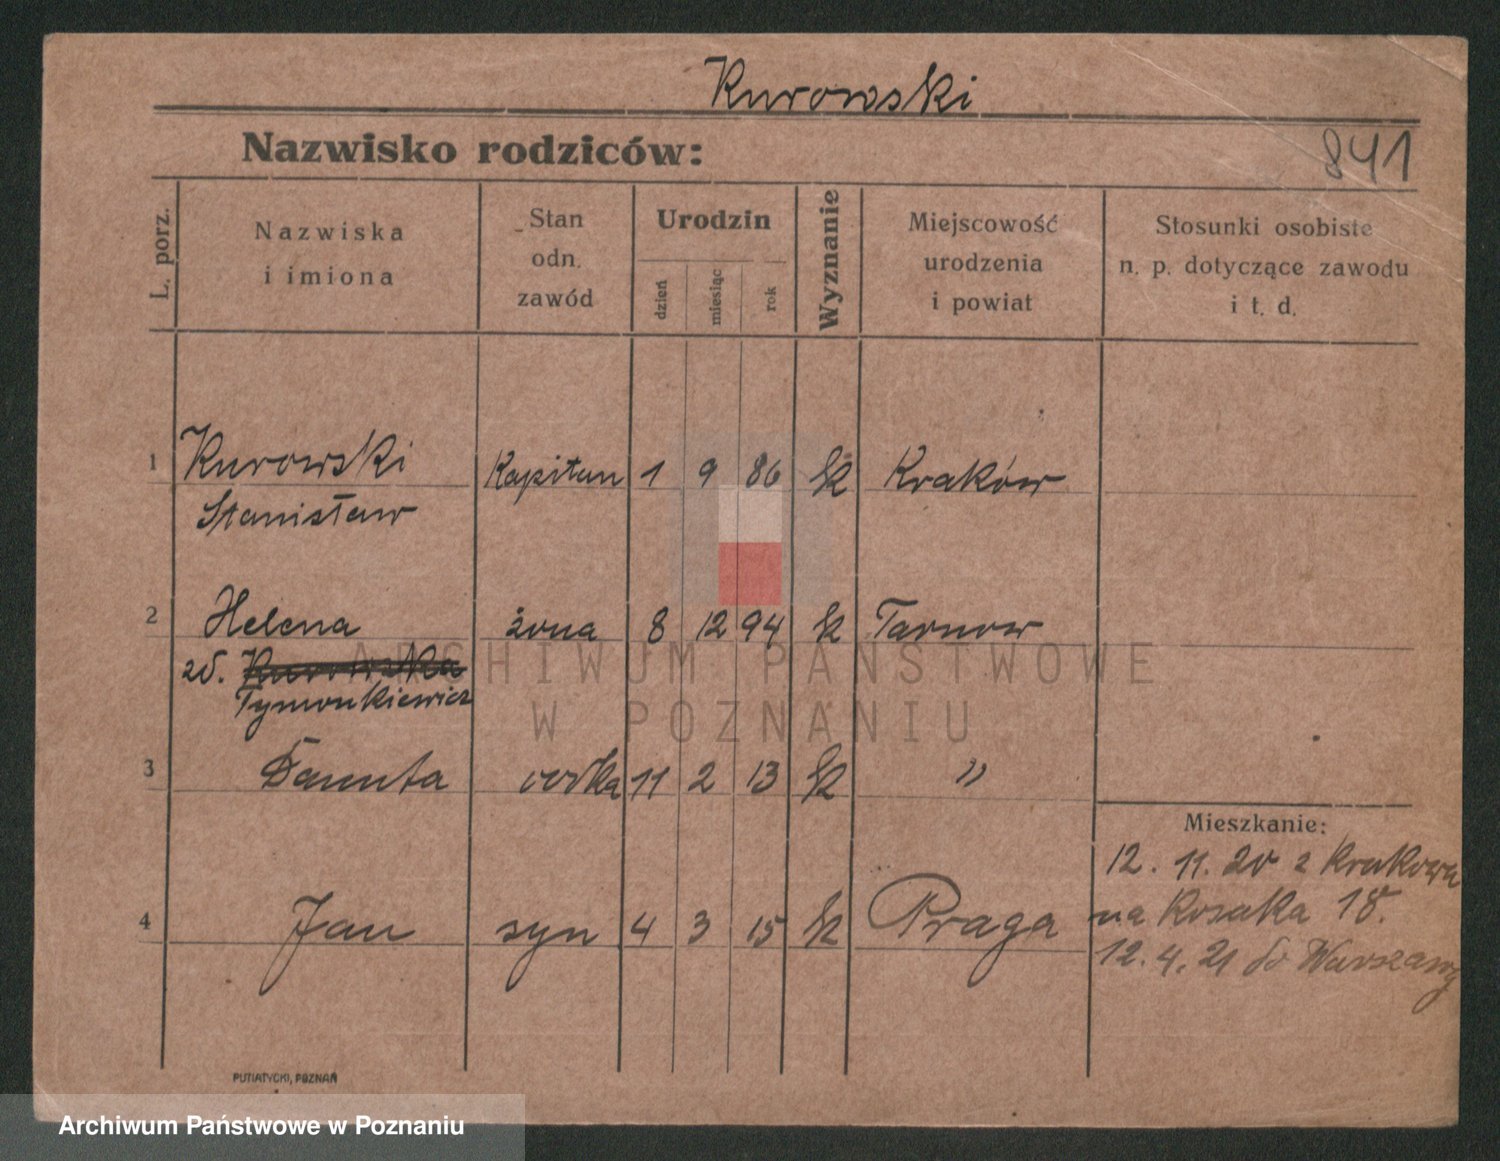 Kurowski
Nazwisko rodziców:
841
L. porz.
Nazwiska
i imiona
Stan
odn.
zawód
Urodzin
dzień
miesiąc
rok
Wyznanie
Miejscowość
urodzenia
i powiat
Stosunki osobiste
n. p. dotyczące zawodu
i t. d.
1 Kurowski Kapitan 1 9 86 k Kraków
Stanisław
2 Helena żona 8 12 94 k Tarnow
zd. Kurowska
Tymonkiewicz
3 Danuta corka 11 2 13 k "
4 Jan syn 4 3 15 k Praga
Mieszkanie:
12. 11. 20 z Krakowa
na Kosaka 18.
12. 4. 21 do Warszawy
PUTIATYCKI, POZNAŃ
ARCHIWUM PAŃSTWOWE
W POZNANIU
Archiwum Państwowe w Poznaniu